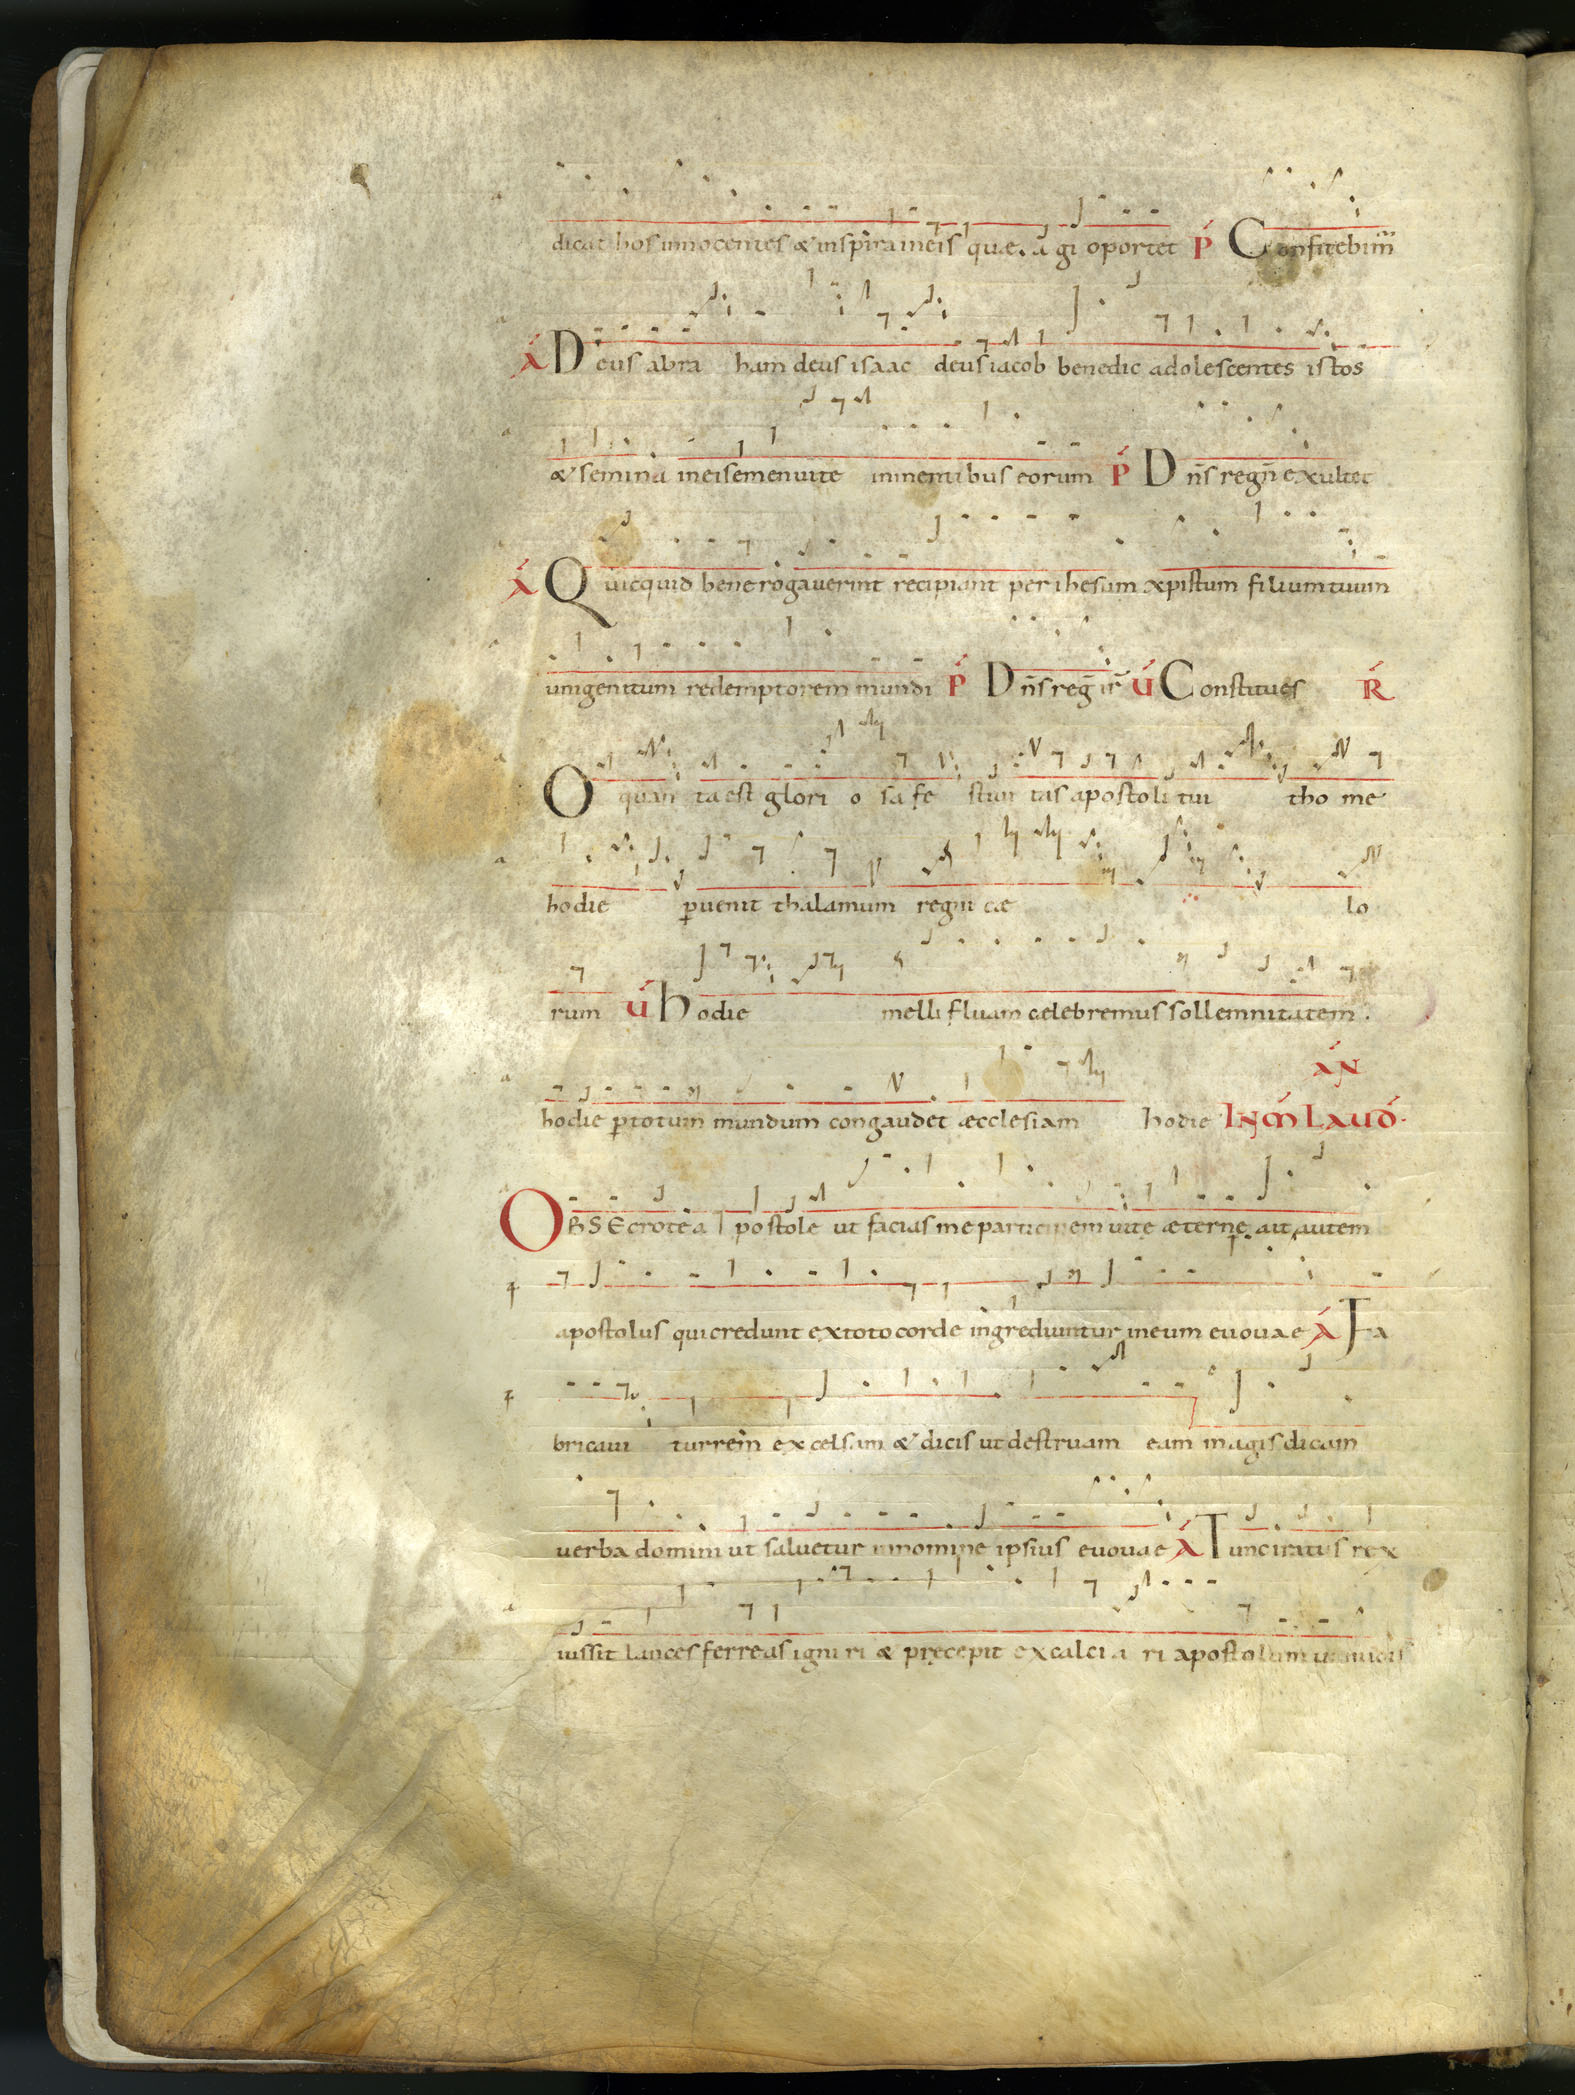 dicat hos innocentes & inspira in eis quæ. a gi oportet P Confitebim̄
A Deus abra ham deus isaac deus iacob benedic adolescentes istos
& semina in eis semen uite in mentibus eorum P Dn̄s regn̄ exultet
A Quicquid bene rogauerint recipiant per ihesum xpistum filium tuum
unigenitum redemptorem mundi P Dn̄s reg̅ ir̅ V Constitues R
O quan ta est glori o sa fe stiui tas apostoli tui tho me
hodie puenit thalamum regni cæ lo
rum V hodie melli fluam celebremus sollemnitatem.
AN
hodie p totum mundum congaudet æcclesiam hodie IN M LAUD.
OBSEcro te a postole ut facias me participem uite æterne ait autem
apostolus qui credunt ex toto corde ingrediuntur in eum euouae A Fa
bricaui turrem excelsam & dicis ut destruam eam magis dicam
uerba domini ut saluetur in nomine ipsius euouae A Tunc iratus rex
iussit lances ferreas igni ri & pręcepit excalci a ri apostolum ut nudis